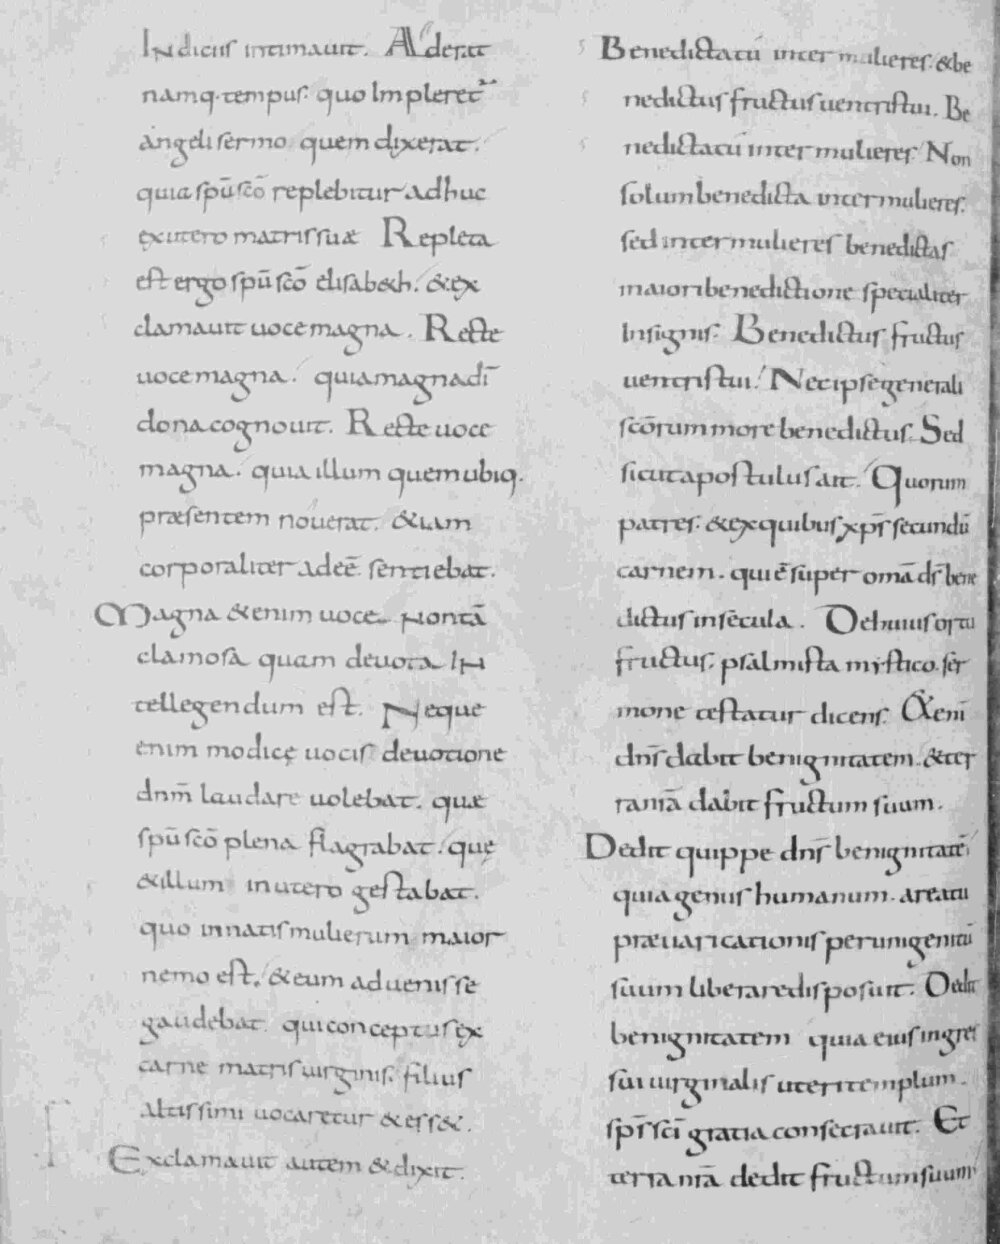 Indiciis intimauit. Aderat
namq. tempus. quo Impleret᷑
angeli sermo quem dixerat.
quia spū scō replebitur adhuc
ex utero matris suæ Repleta
est ergo spū scō elisab&h. & ex
clamauit uoce magna. Recte
uoce magna. quia magna dī
dona cognouit. Recte uoce
magna. quia illum quem ubiq.
præsentem nouerat. &iam
corporaliter adeē sentiebat.
Magna &enim uoce non tā
clamosa quam deuota In
tellegendum est. Neque
enim modicę uocis deuotione
dnm̄ laudare uolebat. quæ
spū scō plena flagrabat. quę
& illum in utero gestabat.
quo in natis mulierum maior
nemo est. & eum aduenisse
gaudebat. qui conceptus ex
carne matris uirginis. filius
altissimi uocaretur & ess&.
Exclamauit autem & dixit.
Benedicta tū inter mulieres. & be
nedictus fructus uentris tui. Be
nedicta tū inter mulieres Non
solum benedicta inter mulieres.
sed inter mulieres benedictas
maiori benedictione specialiter
Insignis. Benedictus fructus
uentris tui. Nec ipse generali
scōrum more benedictus. Sed
sicut apostulus ait. Quorum
patres. & ex quibus xp̄s secundū
carnem. qui ē super omā ds̄ bene
dictus in secula. De huius ortu
fructus. psalmista mystico ser
mone testatur dicens. &enī
dn̄s dabit benignitatem. & ter
ra nrā dabit fructum suum.
Dedit quippe dn̄s benignitatē
quia genus humanum. a reatu
præuaricationis per unigenitū
suum liberare disposuit. Dedit
benignitatem quia eius ingres
sui uirginalis uteri templum.
sp̄s scī gratia consecrauit. Et
terra nrā dedit fructum suum